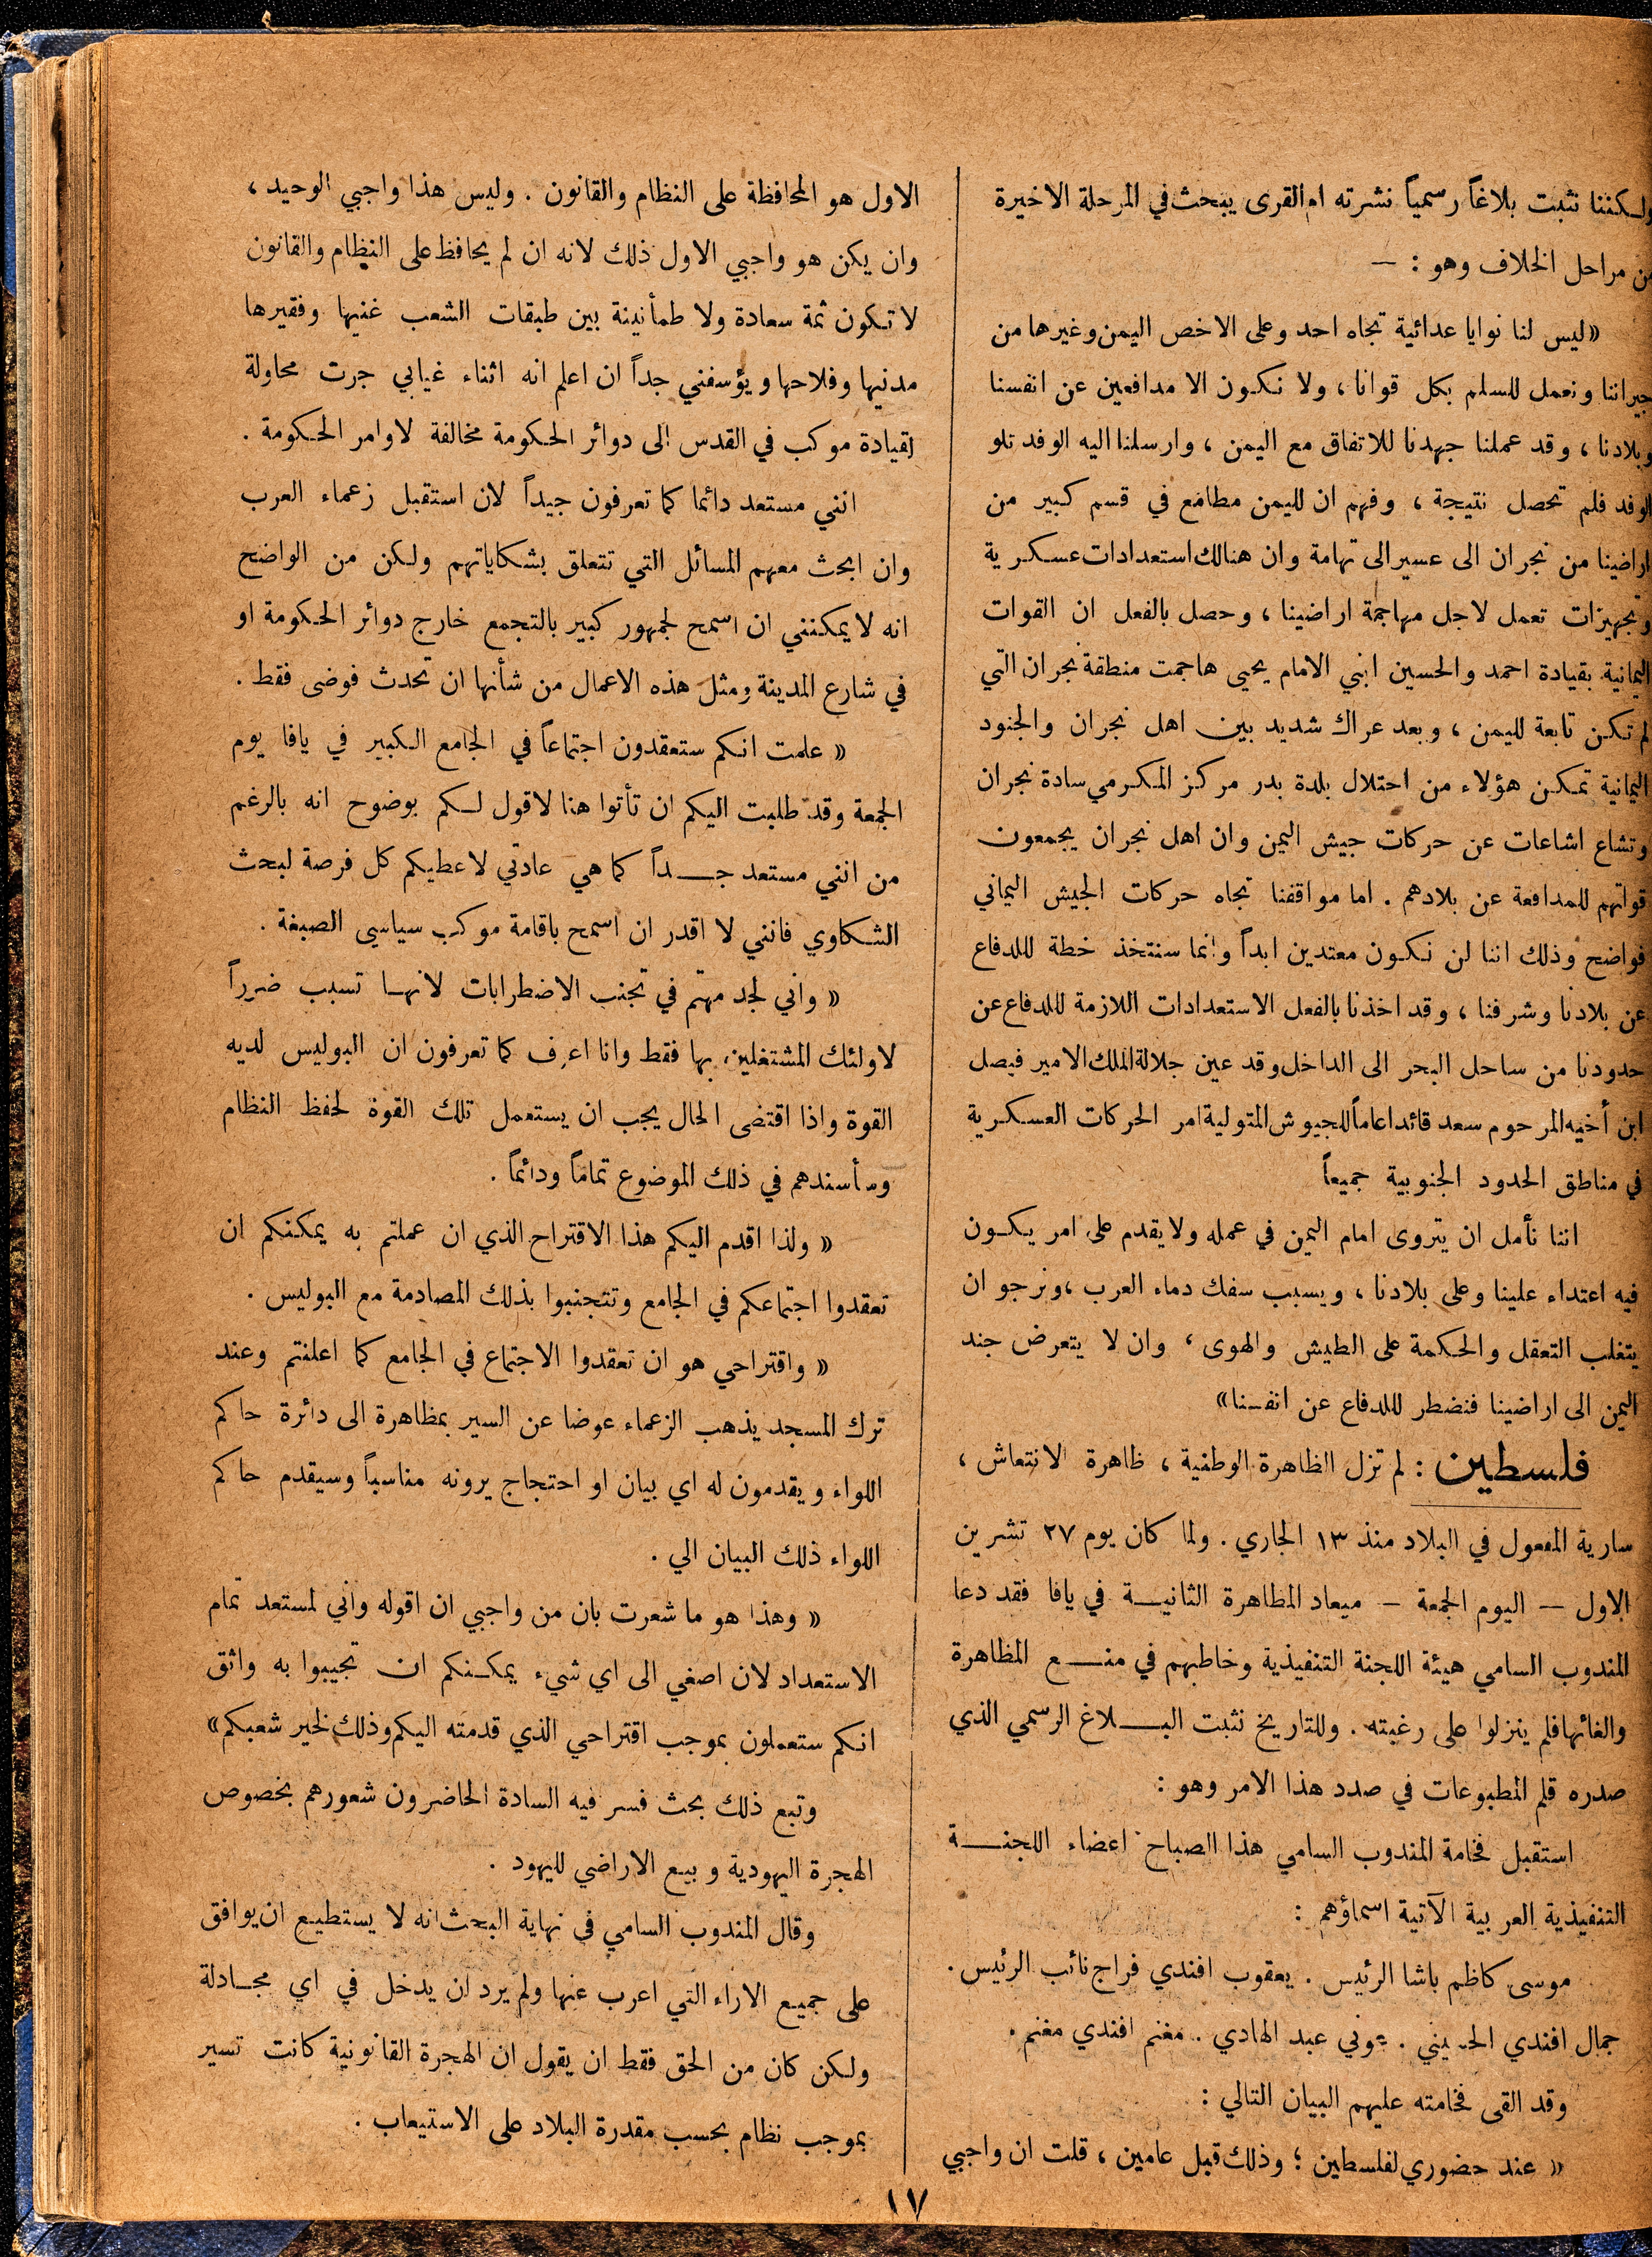 ولكننا نثبت بلاغاً رسمياً نشرته ام القرى يبحث في المرحلة الاخيرة
من مراحل الخلاف وهو : —
«ليس لنا نوايا عدائية تجاه احد وعلى الاخص اليمن وغيرها من
جيراننا ونعمل للسلم بكل قوانا ، ولا نكون الا مدافعين عن انفسنا
وبلادنا ، وقد عملنا جهدنا للاتفاق مع اليمن ، وارسلنا اليه الوفد تلو
الوفد فلم تحصل نتيجة ، وفهم ان لليمن مطامع في قسم كبير من
اراضينا من نجران الى عسير الى تهامة وان هنالك استعدادات عسكرية
وتجهيزات تعمل لاجل مهاجمة اراضينا ، وحصل بالفعل ان القوات
اليمانية بقيادة احمد والحسين ابني الامام يحيى هاجمت منطقة نجران التي
لم تكن تابعة لليمن ، وبعد عراك شديد بين اهل نجران والجنود
اليمانية تمكن هؤلاء من احتلال بلدة بدر مركز المكرمي سادة نجران
وتشاع اشاعات عن حركات جيش اليمن وان اهل نجران يجمعون
قواتهم للمدافعة عن بلادهم . اما مواقفنا تجاه حركات الجيش اليماني
فواضح وذلك اننا لن نكون معتدين ابداً وانما سنتخذ خطة للدفاع
عن بلادنا وشرفنا ، وقد اخذنا بالفعل الاستعدادات اللازمة للدفاع عن
حدودنا من ساحل البحر الى الداخل وقد عين جلالة الملك الامير فيصل
ابن أخيه المرحوم سعد قائداً عاماً للجيوش المتولية امر الحركات العسكرية
في مناطق الحدود الجنوبية جميعاً
اننا نأمل ان يتروى امام اليمن في عمله ولا يقدم على امر يكون
فيه اعتداء علينا وعلى بلادنا ، ويسبب سفك دماء العرب ، ونرجو ان
يتغلب التعقل والحكمة على الطيش والهوى ، وان لا يتعرض جند
اليمن الى اراضينا فنضطر للدفاع عن انفسنا»
فلسطين : لم تزل الظاهرة الوطنية ، ظاهرة الانتعاش ،
سارية المفعول في البلاد منذ ١٣ الجاري . ولما كان يوم ٢٧ تشرين
الاول — اليوم الجمعة — ميعاد المظاهرة الثانية في يافا فقد دعا
المندوب السامي هيئة اللجنة التنفيذية وخاطبهم في منع المظاهرة
والغائها فلم ينزلوا على رغبته . وللتاريخ نثبت البلاغ الرسمي الذي
صدره قلم المطبوعات في صدد هذا الامر وهو :
استقبل فخامة المندوب السامي هذا الصباح اعضاء اللجنة
التنفيذية العربية الآتية اسماؤهم :
موسى كاظم باشا الرئيس . يعقوب افندي فراج نائب الرئيس .
جمال افندي الحسيني . عوني عبد الهادي . مغنم افندي مغنم .
وقد القى فخامته عليهم البيان التالي :
« عند حضوري لفلسطين ؛ وذلك قبل عامين ، قلت ان واجبي
الاول هو المحافظة على النظام والقانون . وليس هذا واجبي الوحيد ،
وان يكن هو واجبي الاول ذلك لانه ان لم يحافظ على النظام والقانون
لا تكون ثمة سعادة ولا طمأنينة بين طبقات الشعب غنيها وفقيرها
مدنيها وفلاحها ويؤسفني جداً ان اعلم انه اثناء غيابي جرت محاولة
لقيادة موكب في القدس الى دوائر الحكومة مخالفة لاوامر الحكومة .
انني مستعد دائما كما تعرفون جيداً لان استقبل زعماء العرب
وان ابحث معهم المسائل التي تتعلق بشكاياتهم ولكن من الواضح
انه لا يمكنني ان اسمح لجمهور كبير بالتجمع خارج دوائر الحكومة او
في شارع المدينة ومثل هذه الاعمال من شأنها ان تحدث فوضى فقط .
« علمت انكم ستعقدون اجتماعاً في الجامع الكبير في يافا يوم
الجمعة وقد طلبت اليكم ان تأتوا هنا لاقول لكم بوضوح انه بالرغم
من انني مستعد جداً كما هي عادتي لاعطيكم كل فرصة لبحث
الشكاوي فانني لا اقدر ان اسمح باقامة موكب سياسي الصبغة .
« واني لجد مهتم في تجنب الاضطرابات لانها تسبب ضرراً
لاولئك المشتغلين بها فقط وانا اعرف كما تعرفون ان البوليس لديه
القوة واذا اقتضى الحال يجب ان يستعمل تلك القوة لحفظ النظام
وسأسندهم في ذلك الموضوع تماماً ودائماً .
« ولذا اقدم اليكم هذا الاقتراح الذي ان عملتم به يمكنكم ان
تعقدوا اجتماعكم في الجامع وتتجنبوا بذلك المصادمة مع البوليس .
« واقتراحي هو ان تعقدوا الاجتماع في الجامع كما اعلنتم وعند
ترك المسجد يذهب الزعماء عوضا عن السير بمظاهرة الى دائرة حاكم
اللواء ويقدمون له اي بيان او احتجاج يرونه مناسباً وسيقدم حاكم
اللواء ذلك البيان الي .
« وهذا هو ما شعرت بان من واجبي ان اقوله واني لمستعد تمام
الاستعداد لان اصغي الى اي شيء يمكنكم ان تجيبوا به واثق
انكم ستعملون بموجب اقتراحي الذي قدمته اليكم وذلك لخير شعبكم»
وتبع ذلك بحث فسر فيه السادة الحاضرون شعورهم بخصوص
الهجرة اليهودية وبيع الاراضي لليهود .
وقال المندوب السامي في نهاية البحث انه لا يستطيع ان يوافق
على جميع الاراء التي اعرب عنها ولم يرد ان يدخل في اي مجادلة
ولكن كان من الحق فقط ان يقول ان الهجرة القانونية كانت تسير
بموجب نظام بحسب مقدرة البلاد على الاستيعاب .
١٧